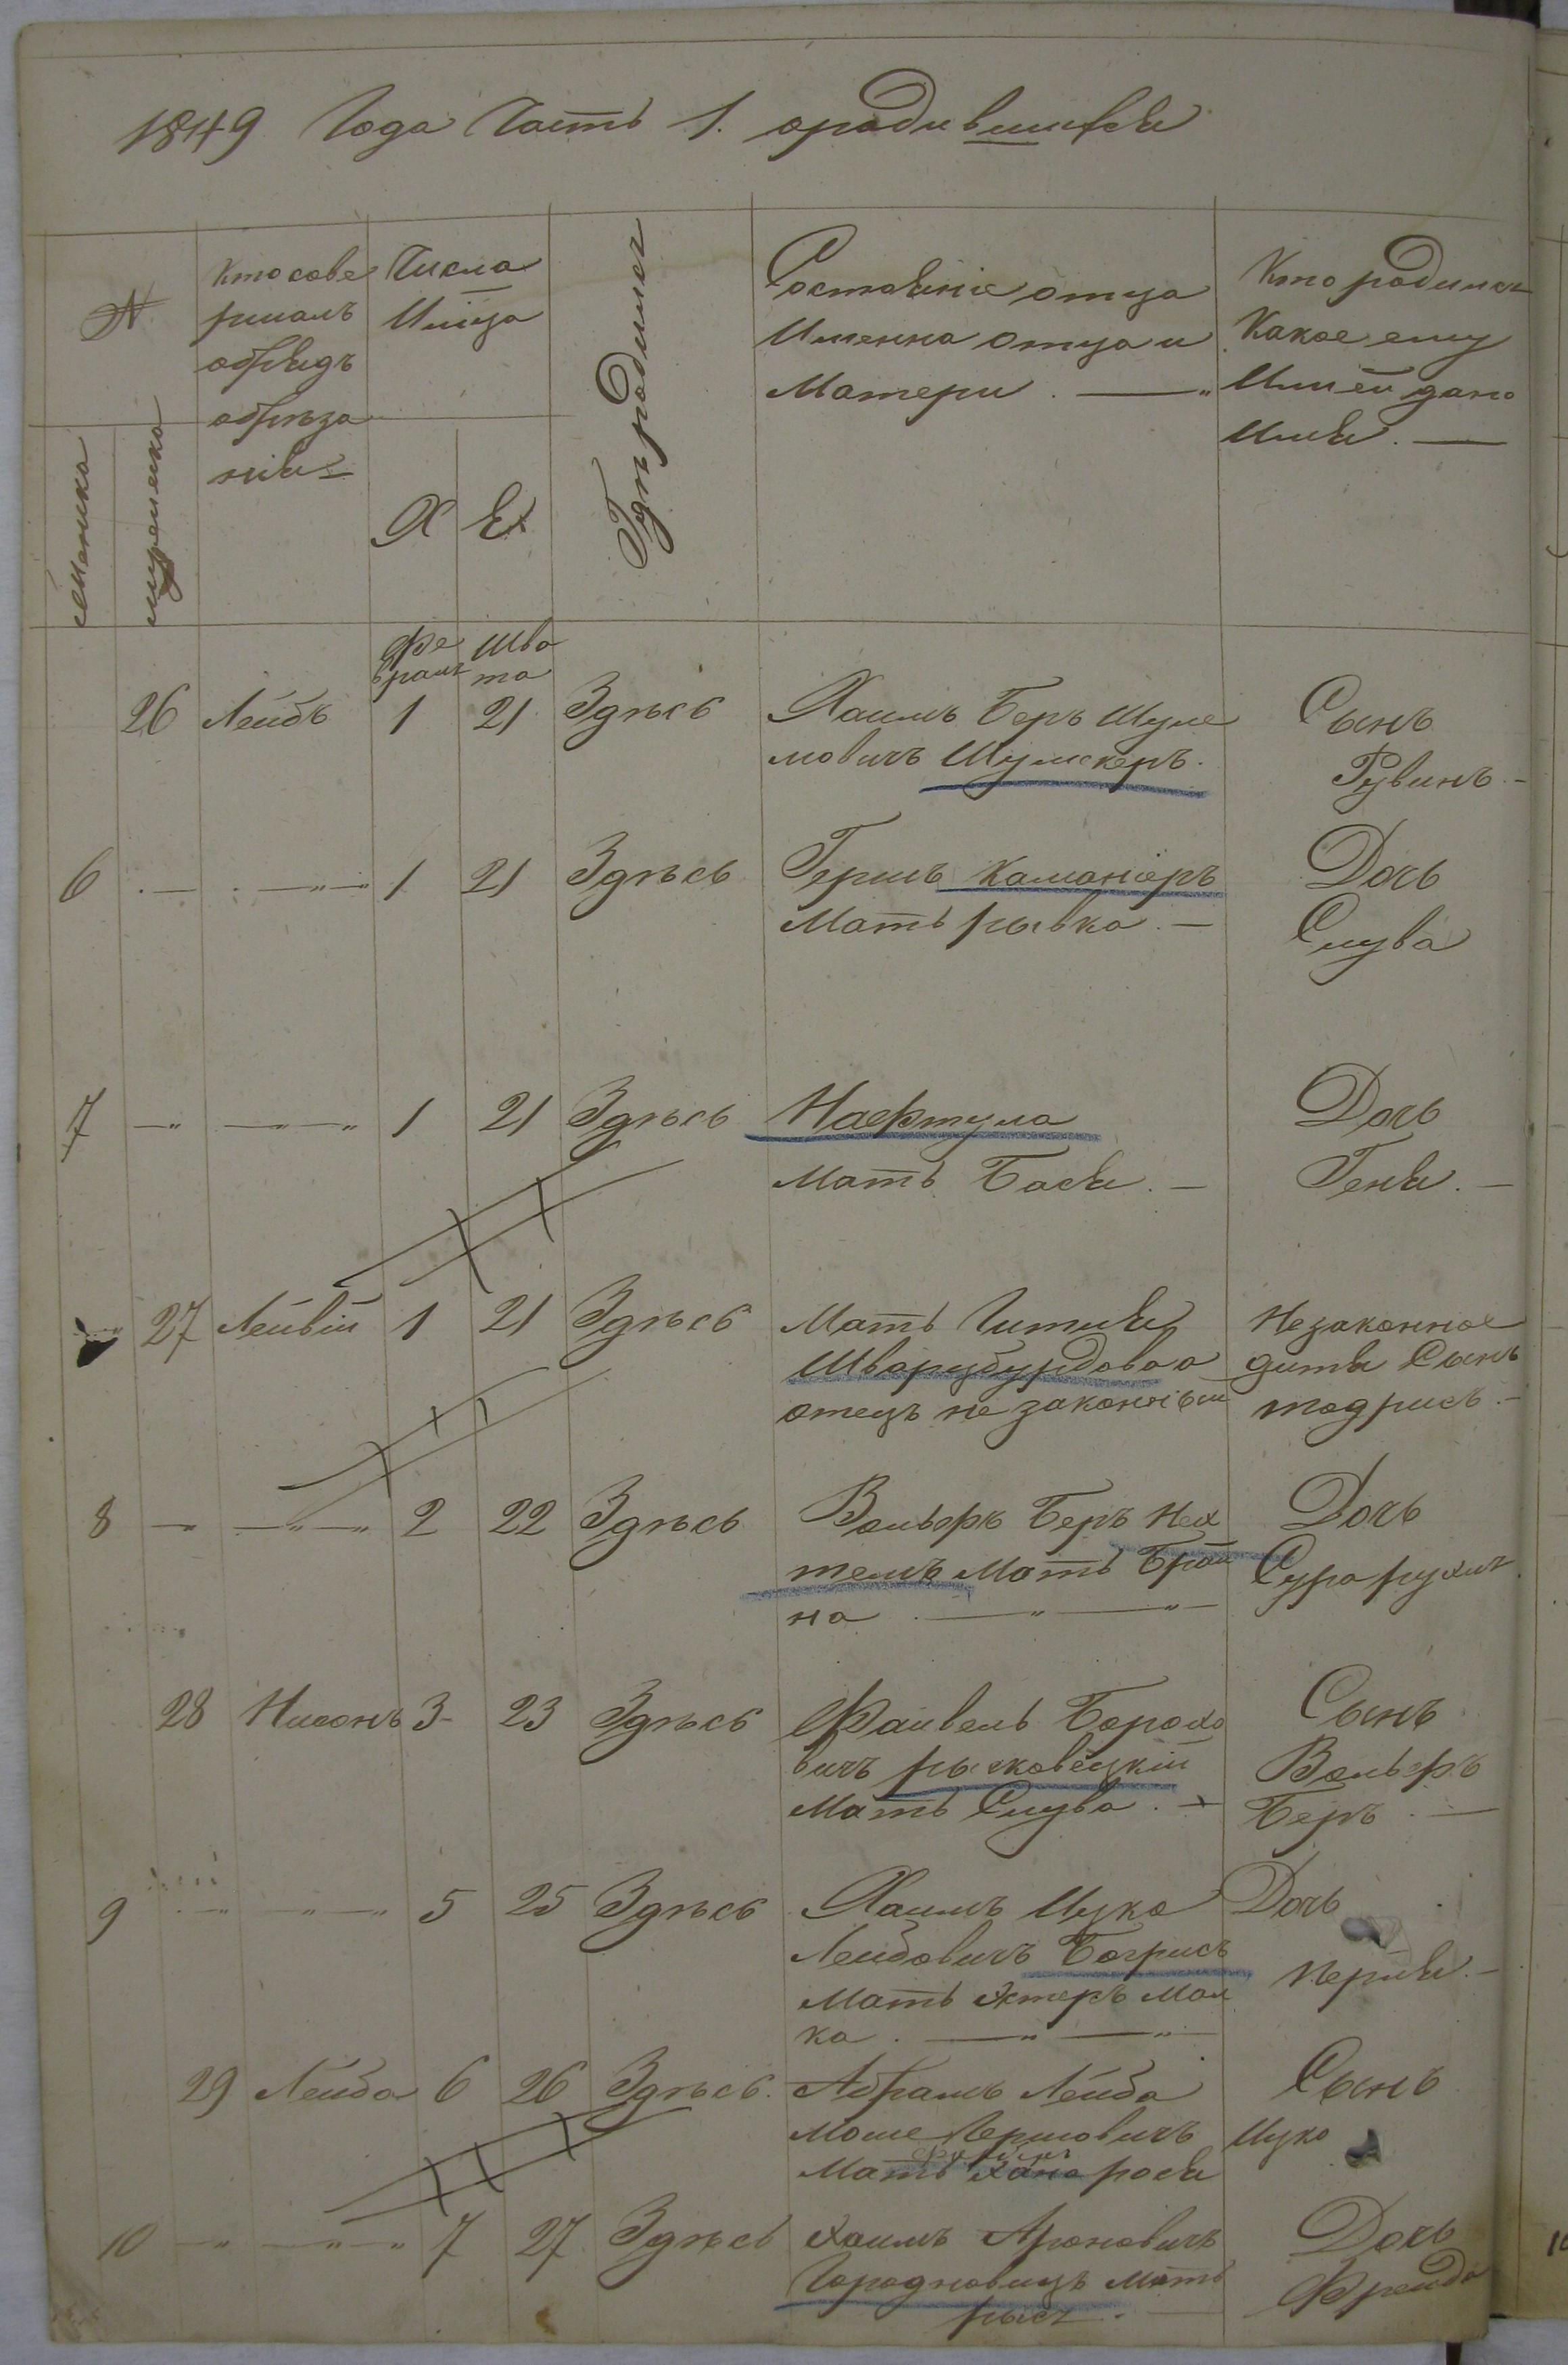 1849 Года Часть 1. о родившихся
№
женска
мужеска
Кто сове
ршалъ
обрядъ
обреза
нія
Числа
Мца
Х
Е
Где родился
Состояніе отца
Имена отца и
Матери. — "
Кто родился
Какое ему
Или ей дано
Имя. —
Фе
враль
Шва
та
26 Лейбъ 1 21 Здесь Хаимъ Беръ Шуле
мовичъ Шумскеръ.
Сынъ
Рувинъ. -
6 . — . — " — 1 21 Здесь Гершъ
Мать рывка. —
Дочь
Слува
7 — " — " — " 1 21 Здесь Нафтула
Мать Бася. —
Дочь
Геня. —
27 Лейвій 1 21 Здесь Мать Гитля
Шварцбурдова а
отецъ не законный
Незаконное
дитя Сынъ
тодрисъ. -
8 — " — " — " 2 22 Здесь Вольфъ Беръ Нех
телъ Мать Брай
на . — " — " —
Дочь
Сура рухля
28 Нисонъ 3 - 23 Здесь Файвель Борохо
вичъ
Мать Слува. —
Сынъ
Вольфъ
Беръ. —
9 — " — " — 5 25 Здесь Хаимъ Ицко
Лейбовичъ Богрисъ
Мать Эстеръ Мал
ка . — " — "
Дочь
Перля. -
29 Лейба 6 26 Здесь. Абрамъ Лейба
Моше Гершовичъ
Мать Хана рося
Сынъ
Ицко
10 — " — " — " 7 27 Здесь Хаимъ Ароновичъ
Мать
рыся. —
Дочь
Фрейда